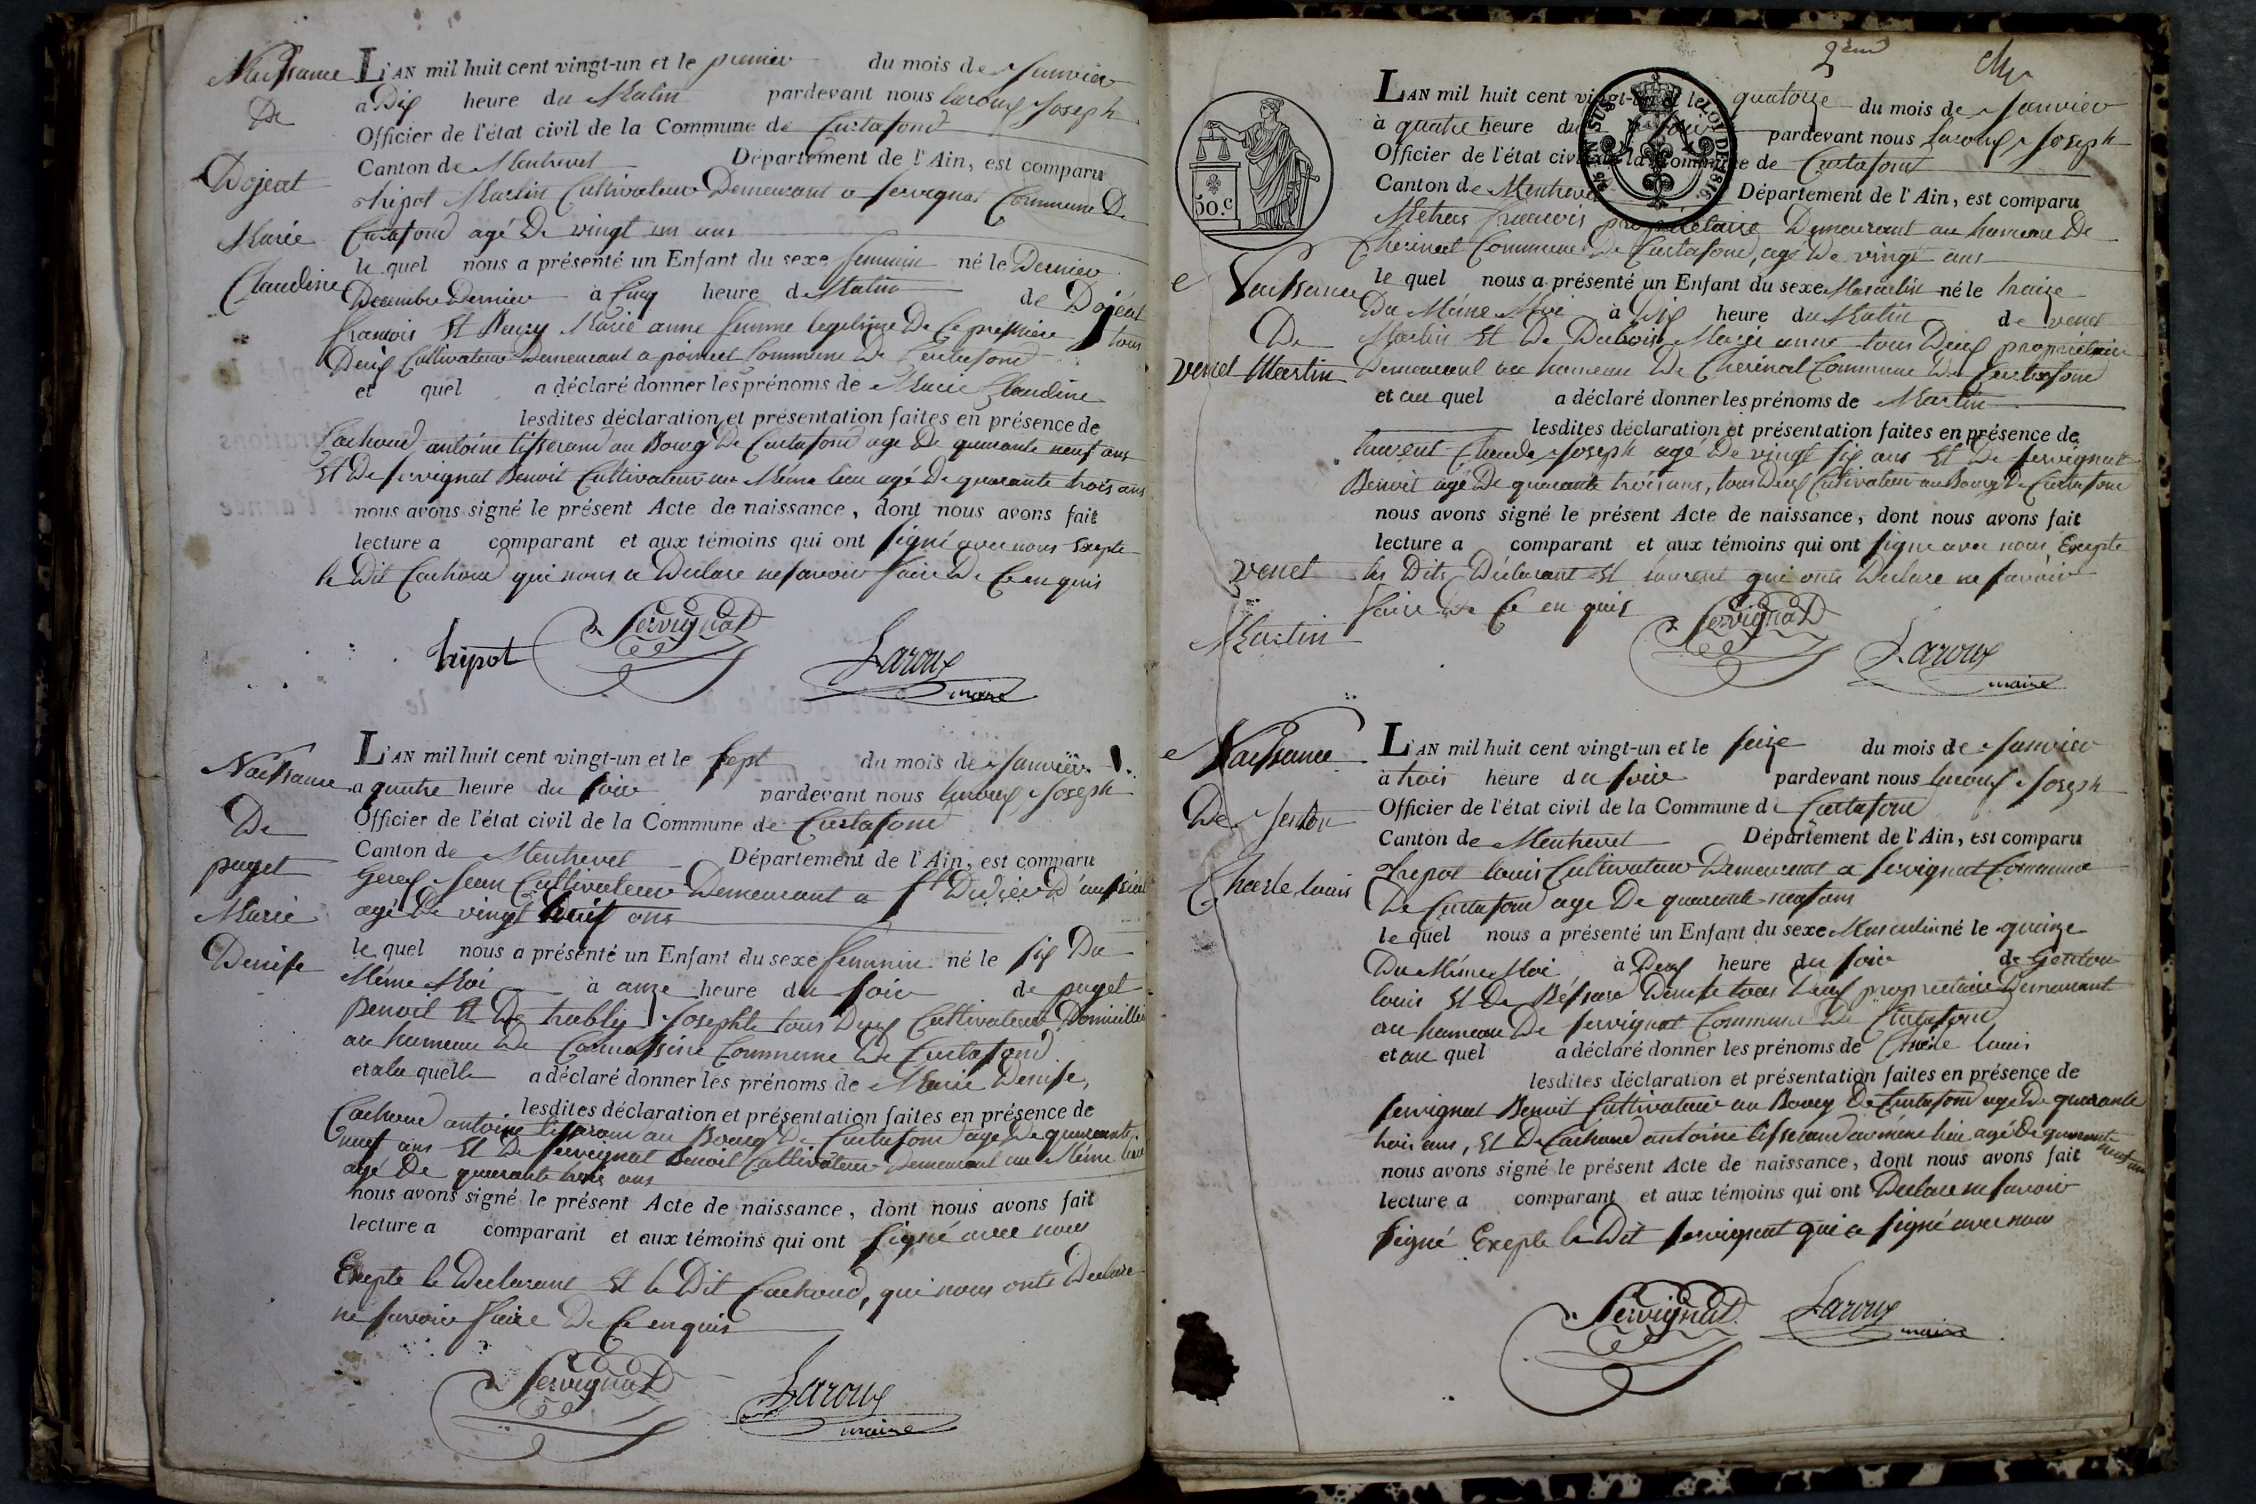 Naissance
De
Dojeat
Marie
Claudine
L'AN mil huit cent vingt-un et le premier du mois de Janvier
a Dix heure du Matin pardevant nous Laroux Joseph
Officier de l'état civil de la Commune de Curtafond
Canton de Montrevel Département de l'Ain, est comparu
tripot Martin Cultivateur Demeurant a Servignat Commune De
Curtafond agé De vingt un ans
le quel nous a présenté un Enfant du sexe feminin né le Dernier
Decembre Dernier à Cinq heure du Matin de Dojéat
francois Et Marie anne femme legitime De Ce premiere tous
Deux Cultivateur Demeurant a Commune De Curtafond
et quel a déclaré donner les prénoms de Marie Claudine
lesdites déclaration et présentation faites en présence de
Cachoud antoine tisserand au Bourg De Curtafond age De quarante neuf ans
Et De Servignat Benoit Cultivateur au Méme lieu agé De quarante trois ans
nous avons signé le présent Acte de naissance, dont nous avons fait
lecture a comparant et aux témoins qui ont signé avec nous Exepte
le Dit Cachoud qui nous a Declare ne savoir faire De Ce enquis
tripot Servignat Laroux
maire
Naissance
De
puget
Marie
Denise
L'AN mil huit cent vingt-un et le sept du mois de Janvier
a quatre heure du soir pardevant nous Laroux Joseph
Officier de l'état civil de la Commune de Curtafond
Canton de Montrevel Département de l'Ain, est comparu
Jean Cultivateur Demeurant a St Didier D'aussiat
agé De vingt huit ans
le quel nous a présenté un Enfant du sexe feminin né le six Du
Méme Moi à onze heure du soir de puget
Benoit Et De Josephte tous Deux Cultivateur Domicillié
au hameau De Commune De Curtafond
et a la quelle a déclaré donner les prénoms de Marie Denise,
lesdites déclaration et présentation faites en présence de
Cachoud antoine tisserand au Bourg De Curtafond age De quarante
neuf ans Et De Servignat Benoit Cultivateur Demeurant au Méme lieu
agé De quarante trois ans
nous avons signé le présent Acte de naissance, dont nous avons fait
lecture a comparant et aux témoins qui ont signé avec nous
Exepte le Declarant Et le Dit Cachoud, qui nous onts Declare
ne savoir faire De Ce enquis
Servignat Laroux
maire
2eme
50.c
Naissance
De
venet Martin
venet
Martin
L'AN mil huit cent vingt-un et le quatorze du mois de Janvier
à quatre heure du soir pardevant nous Laroux Joseph
Officier de l'état civil de la Commune de Curtafond
Canton de Montrevel Département de l'Ain, est comparu
francois proprietaire Demeurant au hameau De
Cherinal Commune De Curtafond, agé De vingt ans
le quel nous a présenté un Enfant du sexe Masculin né le traize
Du Méme Moi à Dix heure du Matin de venet
Martin Et De Dubois Marie anne tous Deux proprietaire
Demeurant au hameau De Cherinal Commune De Curtafond
et au quel a déclaré donner les prénoms de Martin
lesdites déclaration et présentation faites en présence de
laurent Claude Joseph agé De vingt six ans Et De Servignat
Benoit agé De quarante trois ans, tous Deux Cultivateur au Bourg De Curtafond
nous avons signé le présent Acte de naissance, dont nous avons fait
lecture a comparant et aux témoins qui ont signé avec nous Exepte
les Dits Déclarant Et laurent qui onts Declare ne savoir
faire De Ce en quis
Servignat Laroux
maire
Naissance
De
Charle louis
L'AN mil huit cent vingt-un et le seize du mois de Janvier
à trois heure du soir pardevant nous Laroux Joseph
Officier de l'état civil de la Commune de Curtafond
Canton de Montrevel Département de l'Ain, est comparu
tripot louis Cultivateur Demeurant a Servignat Commune
De Curtafond age De quarante neuf ans
le quel nous a présenté un Enfant du sexe Masculin né le quinze
Du Méme Moi à Deux heure du soir de
louis Et De Denise tous Deux proprietaire Demeurant
au hameau De Servignat Commune De Curtafond
et au quel a déclaré donner les prénoms de Charle louis
lesdites déclaration et présentation faites en présence de
Servignat Benoit Cultivateur au Bourg De Curtafond age De quarante
trois ans, Et De Cachoud antoine tisserand au meme lieu agé De quarante neuf ans
nous avons signé le présent Acte de naissance, dont nous avons fait
lecture a comparant et aux témoins qui ont Declare ne savoir
signé Exepte le Dit Servignat qui a signé avec nous
Servignat Laroux
maire